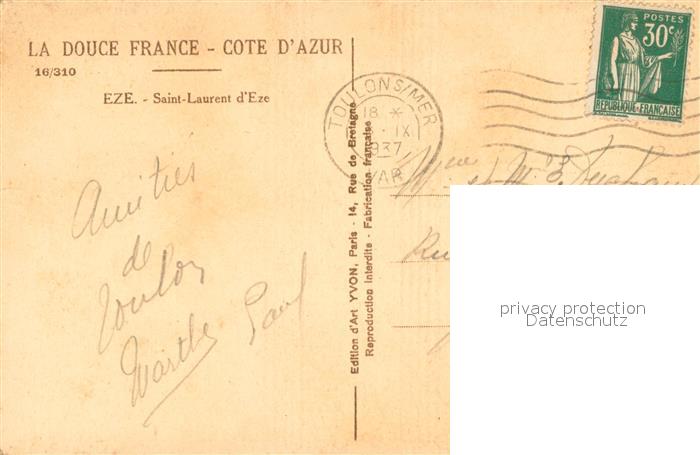 LA DOUCE FRANCE - COTE D'AZUR
16/310
EZE. - Saint-Laurent d'Eze
POSTES
30c
REPUBLIQUE FRANÇAISE
TOULON S/MER
18 *
IX
1937
VAR
Edition d'Art YVON, Paris - 14, Rue de Bretagne
Reproduction Interdite - Fabrication française
Amitiés
de
Toulon
Marthe Paul
Mme
et Mr
privacy protection
Datenschutz